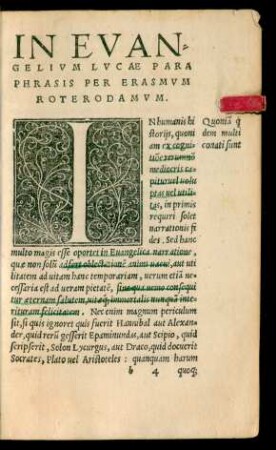 IN EVAN-
GELIVM LVCAE PARA
PHRASIS PER ERASMVM
ROTERODAMVM.
IN humanis hi
storijs, quoni
am ex cogni
tiōe rerum nō
mediocris ca-
pitur uel uolu
ptas uel utili-
tas, in primis
requiri solet
narrationis fi
des. Sed hanc
Quoniā q̃
dem multi
conati sunt
multo magis esse oportet in Euangelica narratione,
quæ non solū adfert oblectationē animo uacuo, aut uti
litatem ad uitam hanc temporariam, uerum etiā ne
cessaria est ad ueram pietatē, sine qua nemo consequi
tur æternam salutem, utaq; immortalis nunquā inte
rituram felicitatem. Nec enim magnum periculum
sit, si quis ignoret quis fuerit Hanibal aut Alexan
der, quid rerū gesserit Epaminundas, aut Scipio, quid
scripserit, Solon Lycurgus, aut Draco, quid docuerit
Socrates, Plato uel Aristoteles : quanquam harum
b 4 quoq;